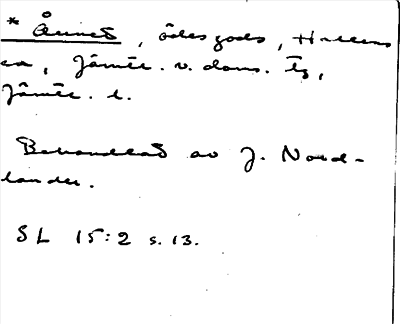 * Ånnet, ödesgods, Hallens
sn, Jämtl. v. doms. tg,
Jämtl. l.
Behandlat av J. Nord-
lander.
SL 15:2 s. 13.